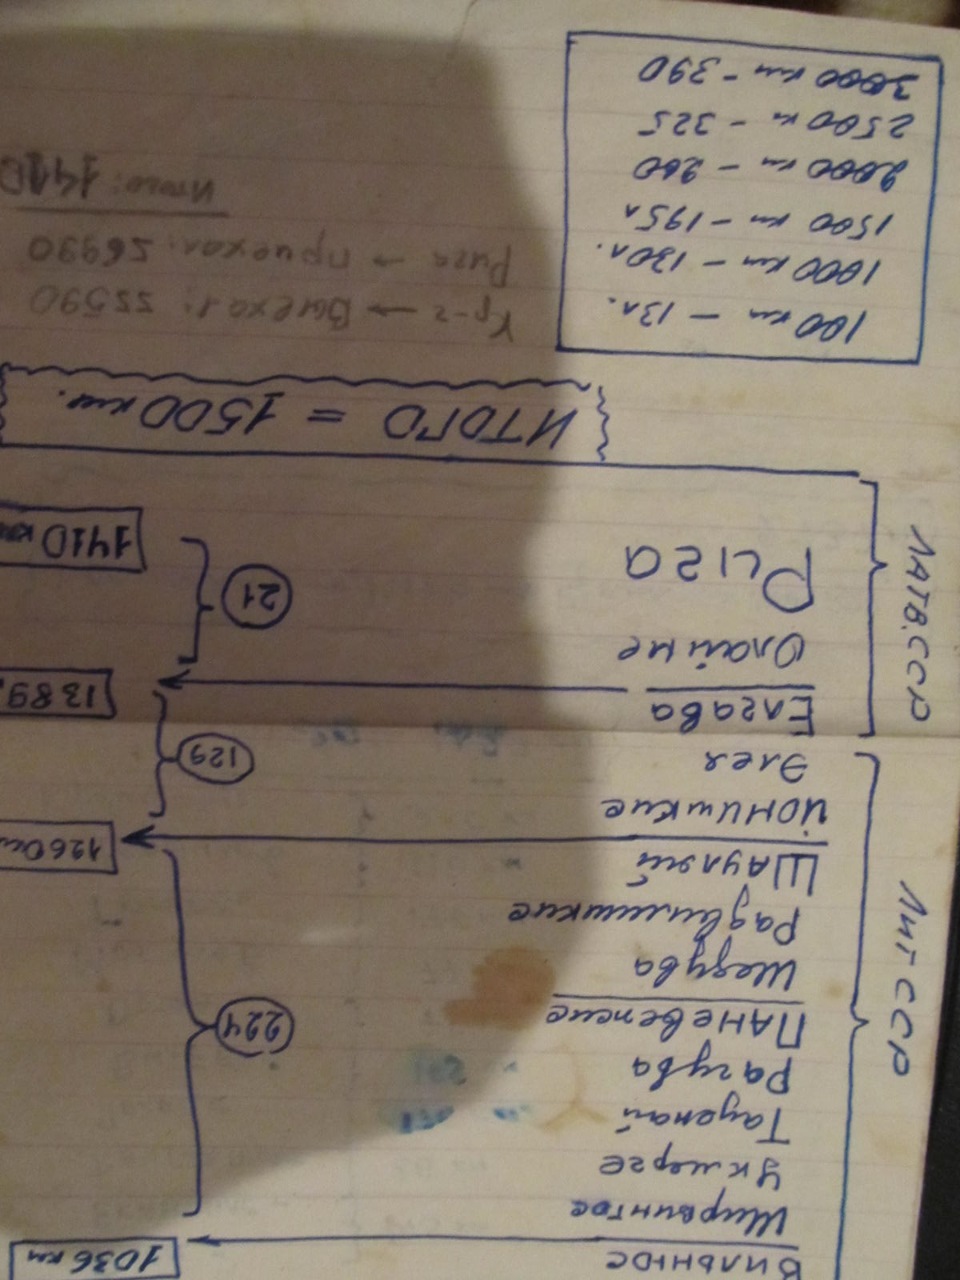 Вильнюс 1036 км
Ширвинтос
Укмерге
Тауенай
Рагува
224
ПАНевежис
Шедува
Радвилишкис
Шауляй
ЛИТ ССР
1260 км
Йонишкис
Элея
129
Елгава
1389
Олайне
21
Рига
1410 км
ЛАТВ. ССР
ИТОГО = 1500 км.
100 км – 13 л.
1000 км – 130 л.
1500 км – 195 л
2000 км – 260
2500 км – 325
3000 км – 390
Кр-г → Выехал:
Рига → приехал: 56990
Итого: 1410